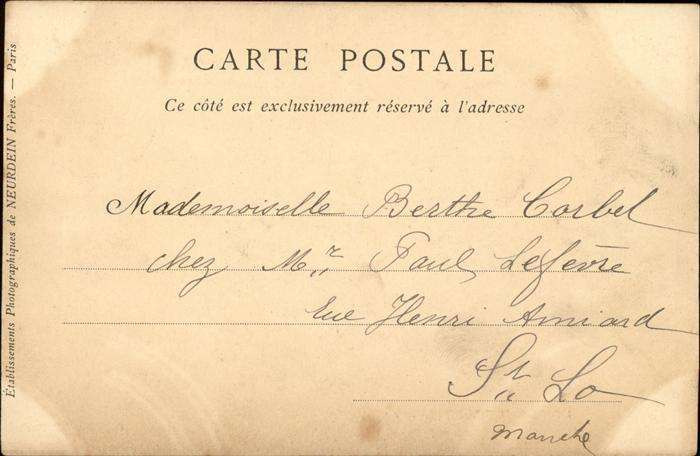 CARTE POSTALE
Ce côté est exclusivement réservé à l'adresse
Mademoiselle Berthe Corbel
chez Mr. Paul Lefèvre
Rue Henri Amiard
St. Lo
Manche
Établissements Photographiques de NEURDEIN Frères. — Paris